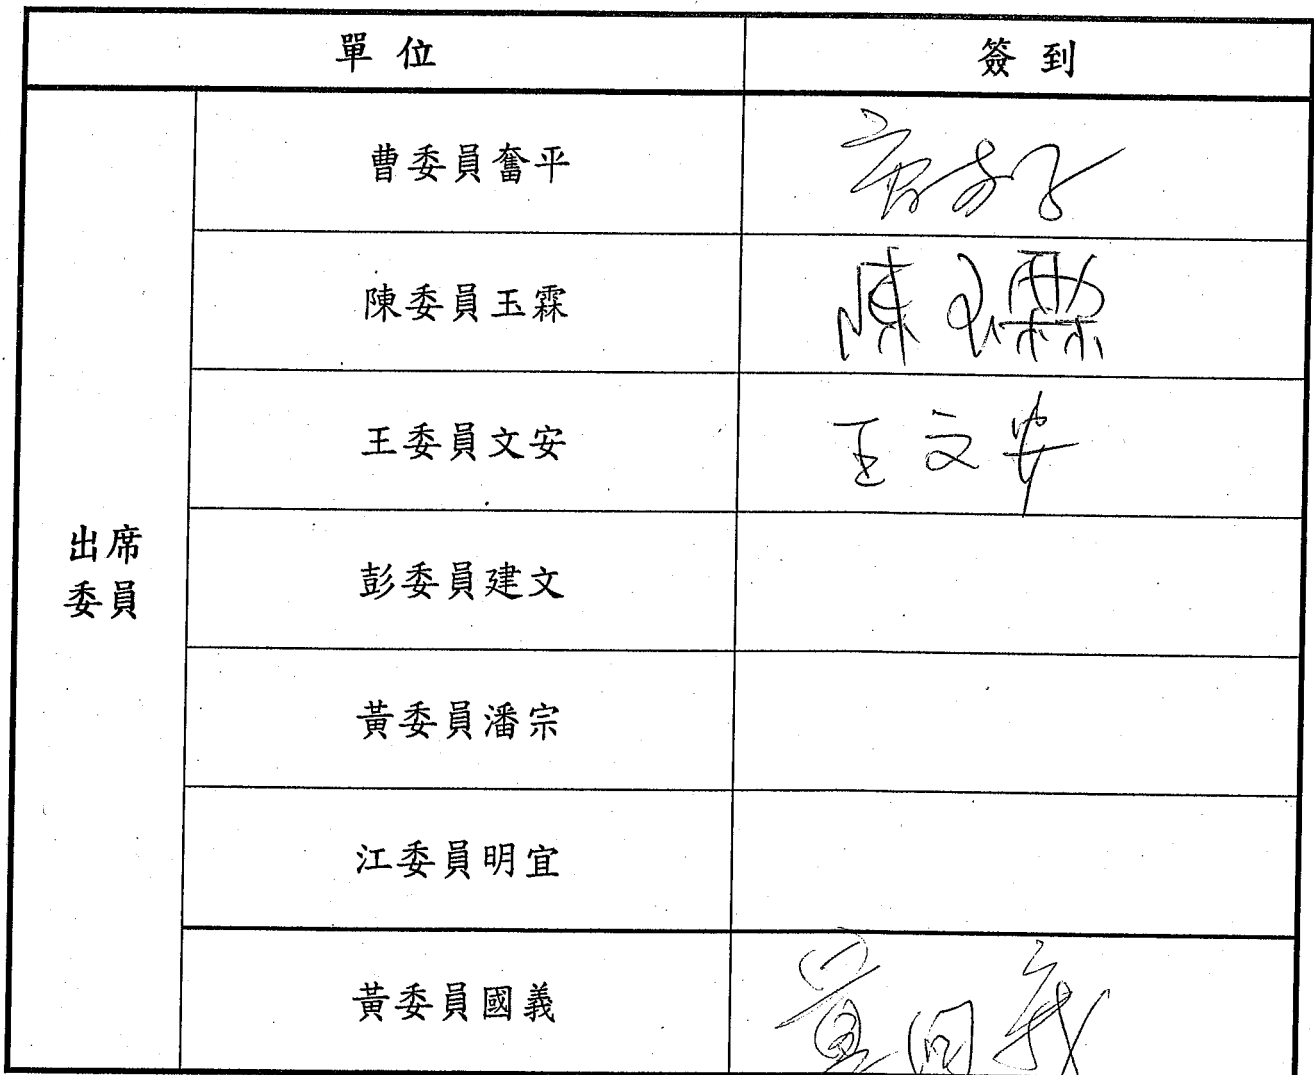 單位 簽到
出席
委員
曹委員奮平
陳委員玉霖 陳玉霖
王委員文安 王文安
彭委員建文
黃委員潘宗
江委員明宜
黃委員國義 黃国義